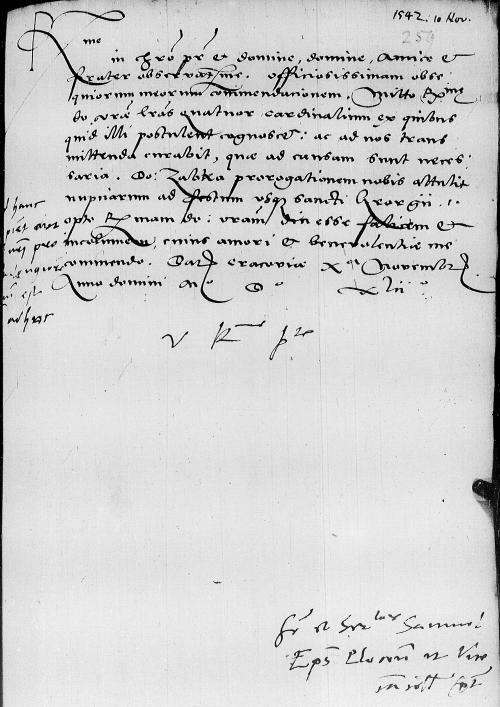 1542. 10 Nov.
259
Rme
in chrō prē et domine, domine, Amice et
frater observan̄me. officiosissimam obse
quiorum meorum commendacionem. Mitto Rme
do. vr̄a lr̄as quatuor cardinalium ex quibus
quid illi postulent cognoscet: ac ad nos trans
mittenda curabit, quae ad causam sunt neces
saria. Do: Zabka prorogationem nobis attulit
nupciarum ad festum usque sancti Georgii.
opto Rmam do: vram diu esse falicem et
incolumem cuius amori et benevolentiae me
commendo. Dat Cracoviae Xa Novembr
Anno domini Mo Do xlii o
hanc
est
adhuc
V R me p
fr et Ser tor Samuel
Eps Plocen et Vice